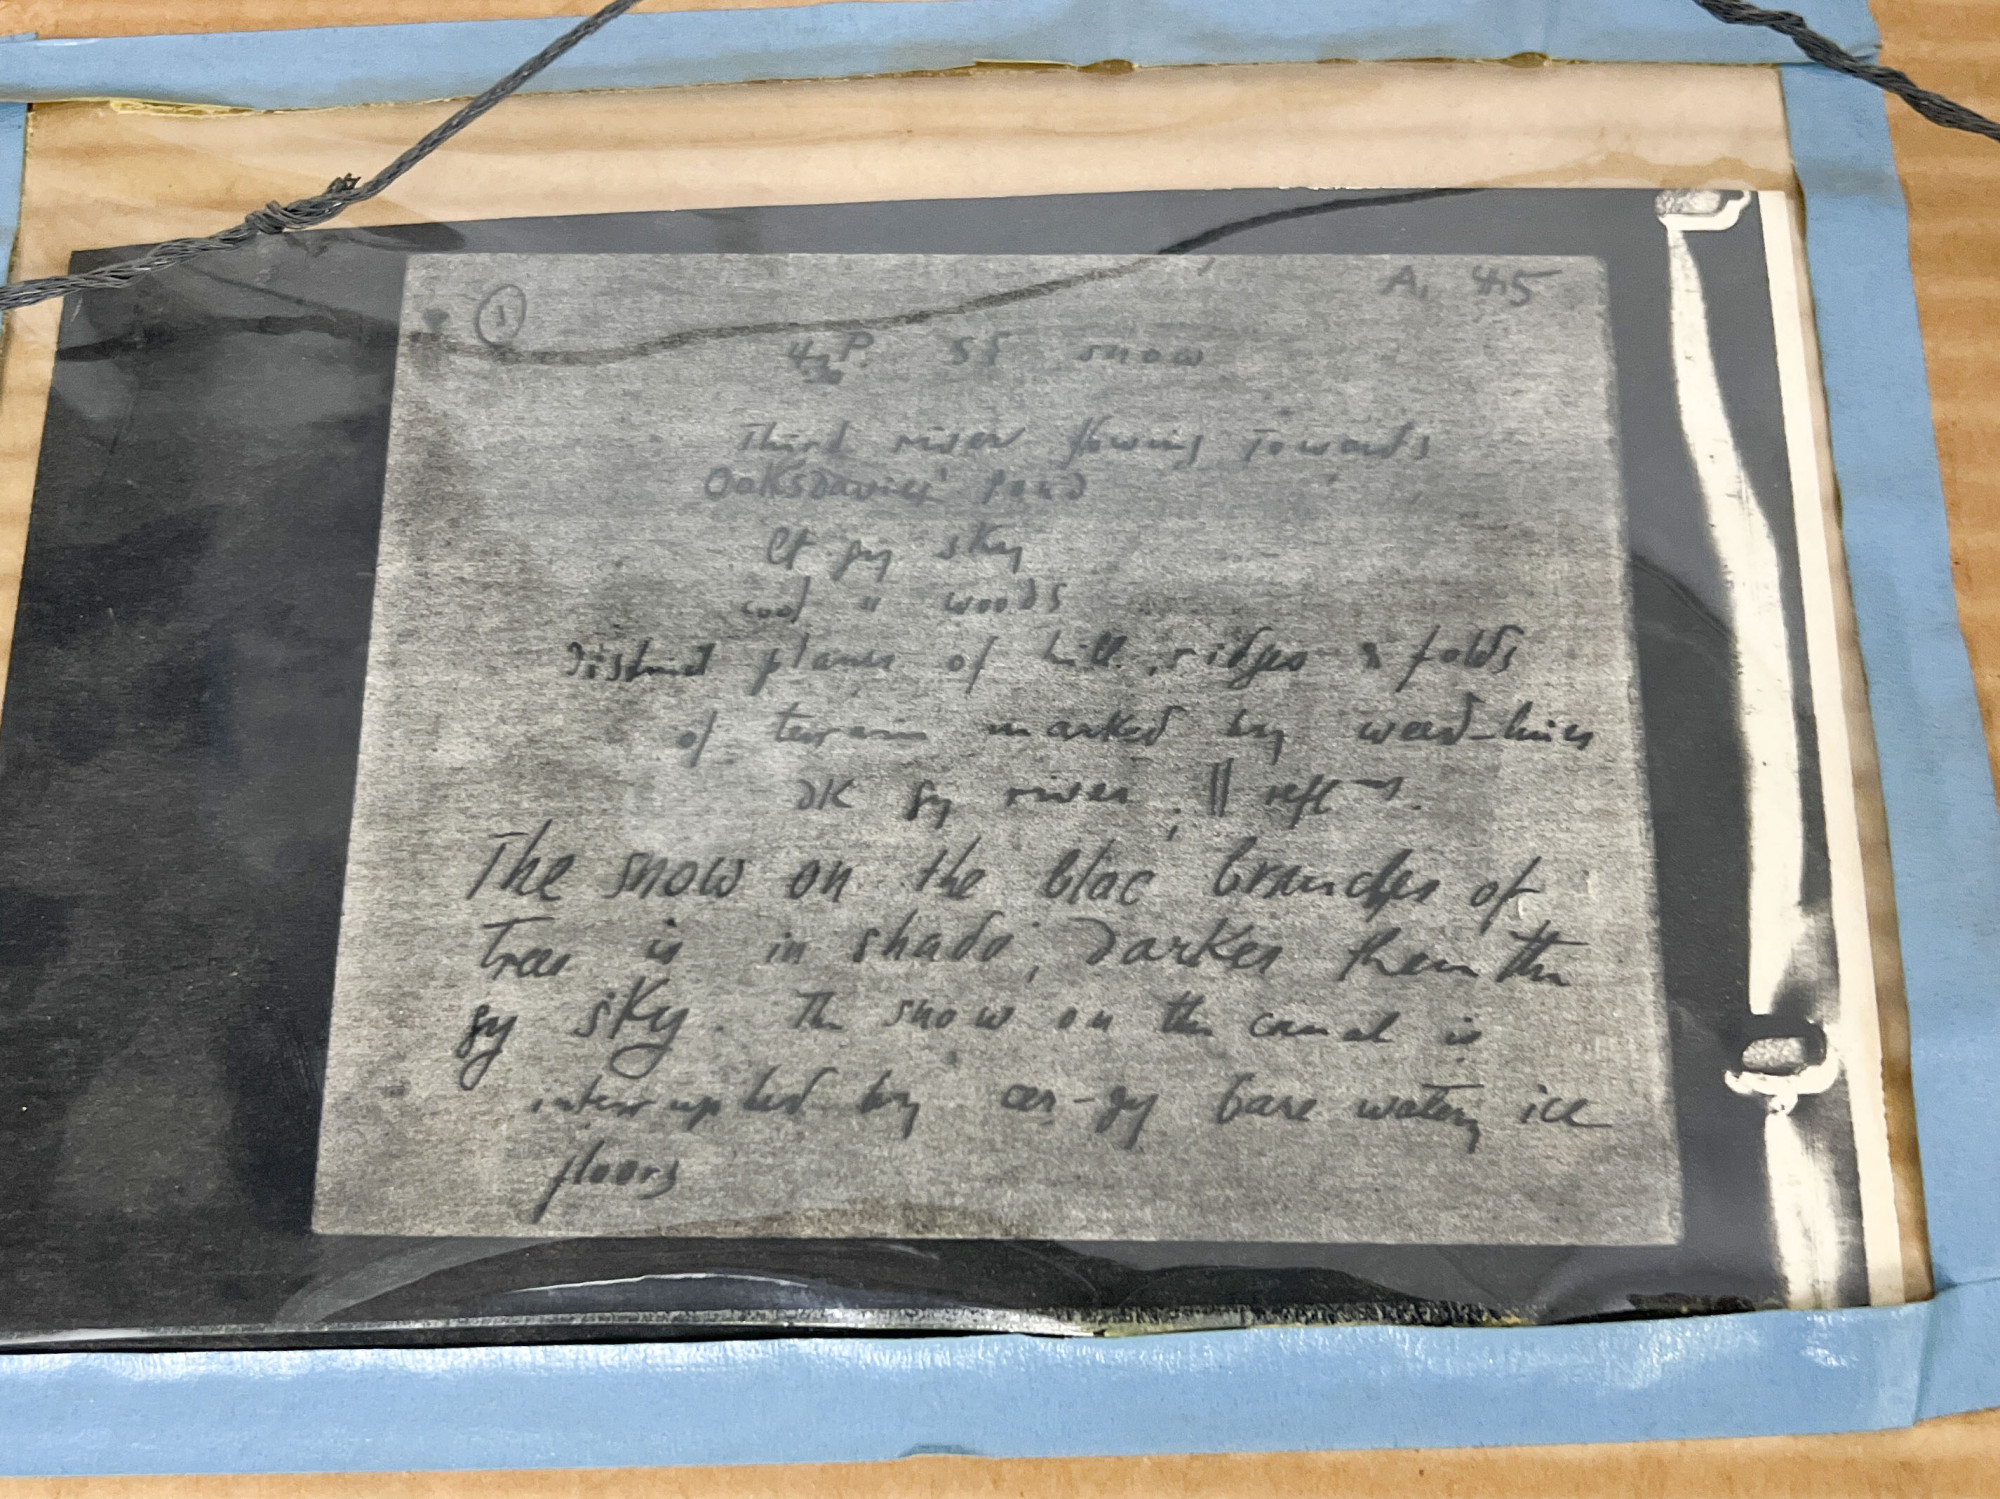 1
A, 45
SS snow
Third river flowing Towards
Pond
sky
cool " woods
Distinct planes of hill ridges & folds
of terrain marked by weed-lines
DK gy river, || refl
The snow on the blac branches of
Trees is in shade, Darker than the
gy sky. The snow on the canal is
interrupted by -gy bare watery ice
floors